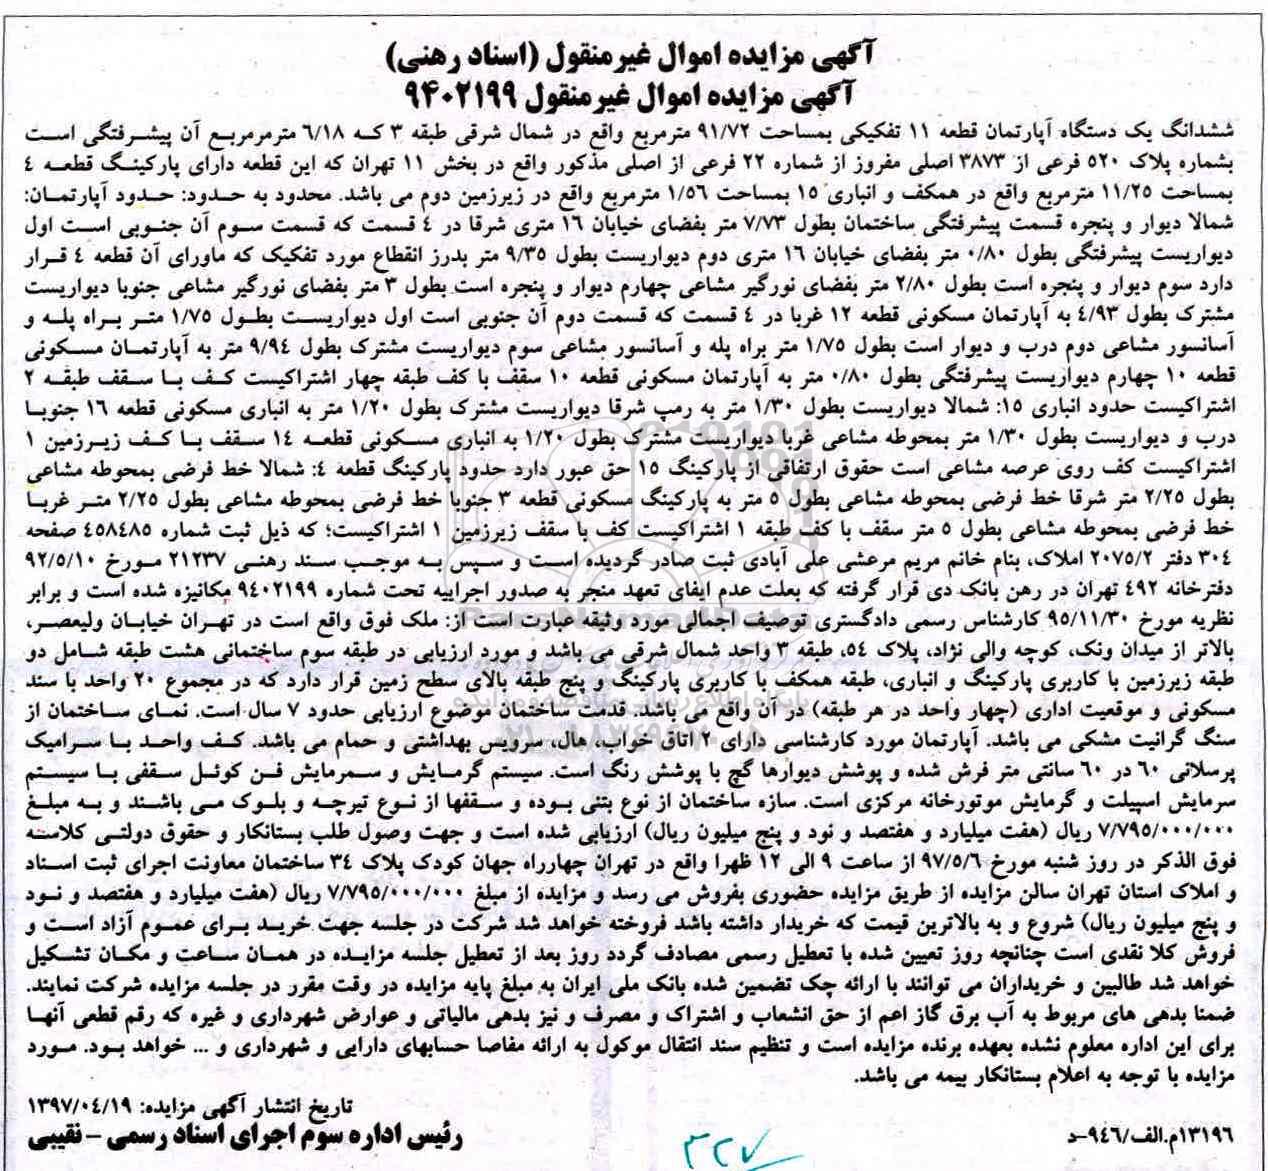 آگهی مزایده اموال غیرمنقول (اسناد رهنی)
آگهی مزایده اموال غیرمنقول ۹۴۰۲۱۹۹
ششدانگ یک دستگاه آپارتمان قطعه ۱۱ تفکیکی بمساحت ۹۱/۷۲ مترمربع واقع در شمال شرقی طبقه ۳ که ۶/۱۸ مترمرمربع آن پیشرفتگی است
بشماره پلاک ۵۲۰ فرعی از ۳۸۷۳ اصلی مفروز از شماره ۲۲ فرعی از اصلی مذکور واقع در بخش ۱۱ تهران که این قطعه دارای پارکینگ قطعه ۴
بمساحت ۱۱/۲۵ مترمربع واقع در همکف و انباری ۱۵ بمساحت ۱/۵۶ مترمربع واقع در زیرزمین دوم می باشد. محدود به حدود: حدود آپارتمان:
شمالا دیوار و پنجره قسمت پیشرفتگی ساختمان بطول ۷/۷۳ متر بفضای خیابان ۱۶ متری شرقا در ۴ قسمت که قسمت سوم آن جنوبی است اول
دیواریست پیشرفتگی بطول ۰/۸۰ متر بفضای خیابان ۱۶ متری دوم دیواریست بطول ۹/۳۵ متر بدرز انقطاع مورد تفکیک که ماورای آن قطعه ۴ قرار
دارد سوم دیوار و پنجره است بطول ۲/۸۰ متر بفضای نورگیر مشاعی چهارم دیوار و پنجره است بطول ۳ متر بفضای نورگیر مشاعی جنوبا دیواریست
مشترک بطول ۴/۹۳ به آپارتمان مسکونی قطعه ۱۲ غربا در ۴ قسمت که قسمت دوم آن جنوبی است اول دیواریست بطول ۱/۷۵ متر براه پله و
آسانسور مشاعی دوم درب و دیوار است بطول ۱/۷۵ متر براه پله و آسانسور مشاعی سوم دیواریست مشترک بطول ۹/۹۴ متر به آپارتمان مسکونی
قطعه ۱۰ چهارم دیواریست پیشرفتگی بطول ۰/۸۰ متر به آپارتمان مسکونی قطعه ۱۰ سقف با کف طبقه چهار اشتراکیست کف با سقف طبقه ۲
اشتراکیست حدود انباری ۱۵: شمالا دیواریست بطول ۱/۳۰ متر به رمپ شرقا دیواریست مشترک بطول ۱/۲۰ متر به انباری مسکونی قطعه ۱۶ جنوبا
درب و دیواریست بطول ۱/۳۰ متر بمحوطه مشاعی غربا دیواریست مشترک بطول ۱/۲۰ به انباری مسکونی قطعه ۱۴ سقف با کف زیرزمین ۱
اشتراکیست کف روی عرصه مشاعی است حقوق ارتفاقی از پارکینگ ۱۵ حق عبور دارد حدود پارکینگ قطعه ۴: شمالا خط فرضی بمحوطه مشاعی
بطول ۲/۲۵ متر شرقا خط فرضی بمحوطه مشاعی بطول ۵ متر به پارکینگ مسکونی قطعه ۳ جنوبا خط فرضی بمحوطه مشاعی بطول ۲/۲۵ متر غربا
خط فرضی بمحوطه مشاعی بطول ۵ متر سقف با کف طبقه ۱ اشتراکیست کف با سقف زیرزمین ۱ اشتراکیست؛ که ذیل ثبت شماره ۴۵۸۴۸۵ صفحه
۳۰۴ دفتر ۲۰۷۵/۲ املاک، بنام خانم مریم مرعشی علی آبادی ثبت صادر گردیده است و سپس به موجب سند رهنی ۲۱۲۳۷ مورخ ۹۲/۵/۱۰
دفترخانه ۴۹۲ تهران در رهن بانک دی قرار گرفته که بعلت عدم ایفای تعهد منجر به صدور اجراییه تحت شماره ۹۴۰۲۱۹۹ مکانیزه شده است و برابر
نظریه مورخ ۹۵/۱۱/۳۰ کارشناس رسمی دادگستری توصیف اجمالی مورد وثیقه عبارت است از: ملک فوق واقع است در تهران خیابان ولیعصر،
بالاتر از میدان ونک، کوچه والی نژاد، پلاک ۵۴، طبقه ۳ واحد شمال شرقی می باشد و مورد ارزیابی در طبقه سوم ساختمانی هشت طبقه شامل دو
طبقه زیرزمین با کاربری پارکینگ و انباری، طبقه همکف با کاربری پارکینگ و پنج طبقه بالای سطح زمین قرار دارد که در مجموع ۲۰ واحد با سند
مسکونی و موقعیت اداری (چهار واحد در هر طبقه) در آن واقع می باشد. قدمت ساختمان موضوع ارزیابی حدود ۷ سال است. نمای ساختمان از
سنگ گرانیت مشکی می باشد. آپارتمان مورد کارشناسی دارای ۲ اتاق خواب، هال، سرویس بهداشتی و حمام می باشد. کف واحد با سرامیک
پرسلانی ۶۰ در ۶۰ سانتی متر فرش شده و پوشش دیوارها گچ با پوشش رنگ است. سیستم گرمایش و سرمایش فن کوئل سقفی با سیستم
سرمایش اسپیلت و گرمایش موتورخانه مرکزی است. سازه ساختمان از نوع بتنی بوده و سقفها از نوع تیرچه و بلوک می باشند و به مبلغ
۷/۷۹۵/۰۰۰/۰۰۰ ریال (هفت میلیارد و هفتصد و نود و پنج میلیون ریال) ارزیابی شده است و جهت وصول طلب بستانکار و حقوق دولتی کلاسه
فوق الذکر در روز شنبه مورخ ۹۷/۵/۶ از ساعت ۹ الی ۱۲ ظهرا واقع در تهران چهارراه جهان کودک پلاک ۳۴ ساختمان معاونت اجرای ثبت اسناد
و املاک استان تهران سالن مزایده از طریق مزایده حضوری بفروش می رسد و مزایده از مبلغ ۷/۷۹۵/۰۰۰/۰۰۰ ریال (هفت میلیارد و هفتصد و نود
و پنج میلیون ریال) شروع و به بالاترین قیمت که خریدار داشته باشد فروخته خواهد شد شرکت در جلسه جهت خرید برای عموم آزاد است و
فروش کلا نقدی است چنانچه روز تعیین شده با تعطیل رسمی مصادف گردد روز بعد از تعطیل جلسه مزایده در همان ساعت و مکان تشکیل
خواهد شد طالبین و خریداران می توانند با ارائه چک تضمین شده بانک ملی ایران به مبلغ پایه مزایده در وقت مقرر در جلسه مزایده شرکت نمایند.
ضمنا بدهی های مربوط به آب برق گاز اعم از حق انشعاب و اشتراک و مصرف و نیز بدهی مالیاتی و عوارض شهرداری و غیره که رقم قطعی آنها
برای این اداره معلوم نشده بعهده برنده مزایده است و تنظیم سند انتقال موکول به ارائه مفاصا حسابهای دارایی و شهرداری و ... خواهد بود. مورد
مزایده با توجه به اعلام بستانکار بیمه می باشد.
تاریخ انتشار آگهی مزایده: ۱۳۹۷/۰۴/۱۹
رئیس اداره سوم اجرای اسناد رسمی – نقیبی
۱۳۱۹۶م.الف/۹۴۶-د
۳۲۷
ParsNamadData